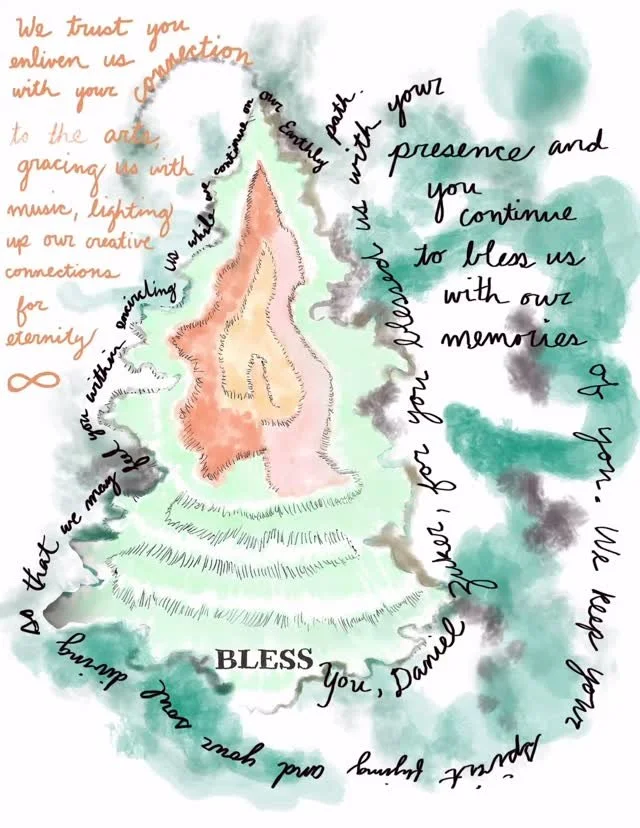 We trust you
enliven us
with your connection
to the arts,
gracing us with
music, lighting
up our creative
connections
for
eternity
∞
BLESS
You, Daniel Zuker, for you blessed us with your
presence and
you
continue
to bless us
with our
memories
of you. We keep your
spirit flying and your soul diving
so that we may feel you within encircling us while we continue on our Earthly path.